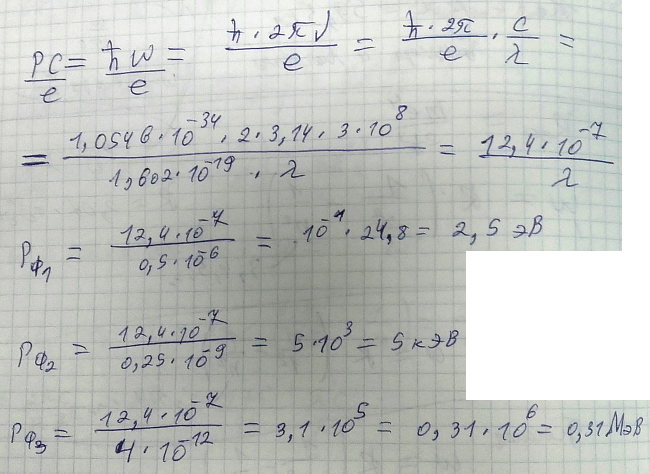 pc/e = ħω/e = ħ·2πν/e = ħ·2π/e · c/λ =
= 1,0546·10⁻³⁴·2·3,14·3·10⁸/1,602·10⁻¹⁹·λ = 12,4·10⁻⁷/λ
Pф₁ = 12,4·10⁻⁷/0,5·10⁻⁶ = 10⁻¹·24,8 = 2,5 эВ
Pф₂ = 12,4·10⁻⁷/0,25·10⁻⁹ = 5·10³ = 5 кэВ
Pф₃ = 12,4·10⁻⁷/4·10⁻¹² = 3,1·10⁵ = 0,31·10⁶ = 0,31 МэВ